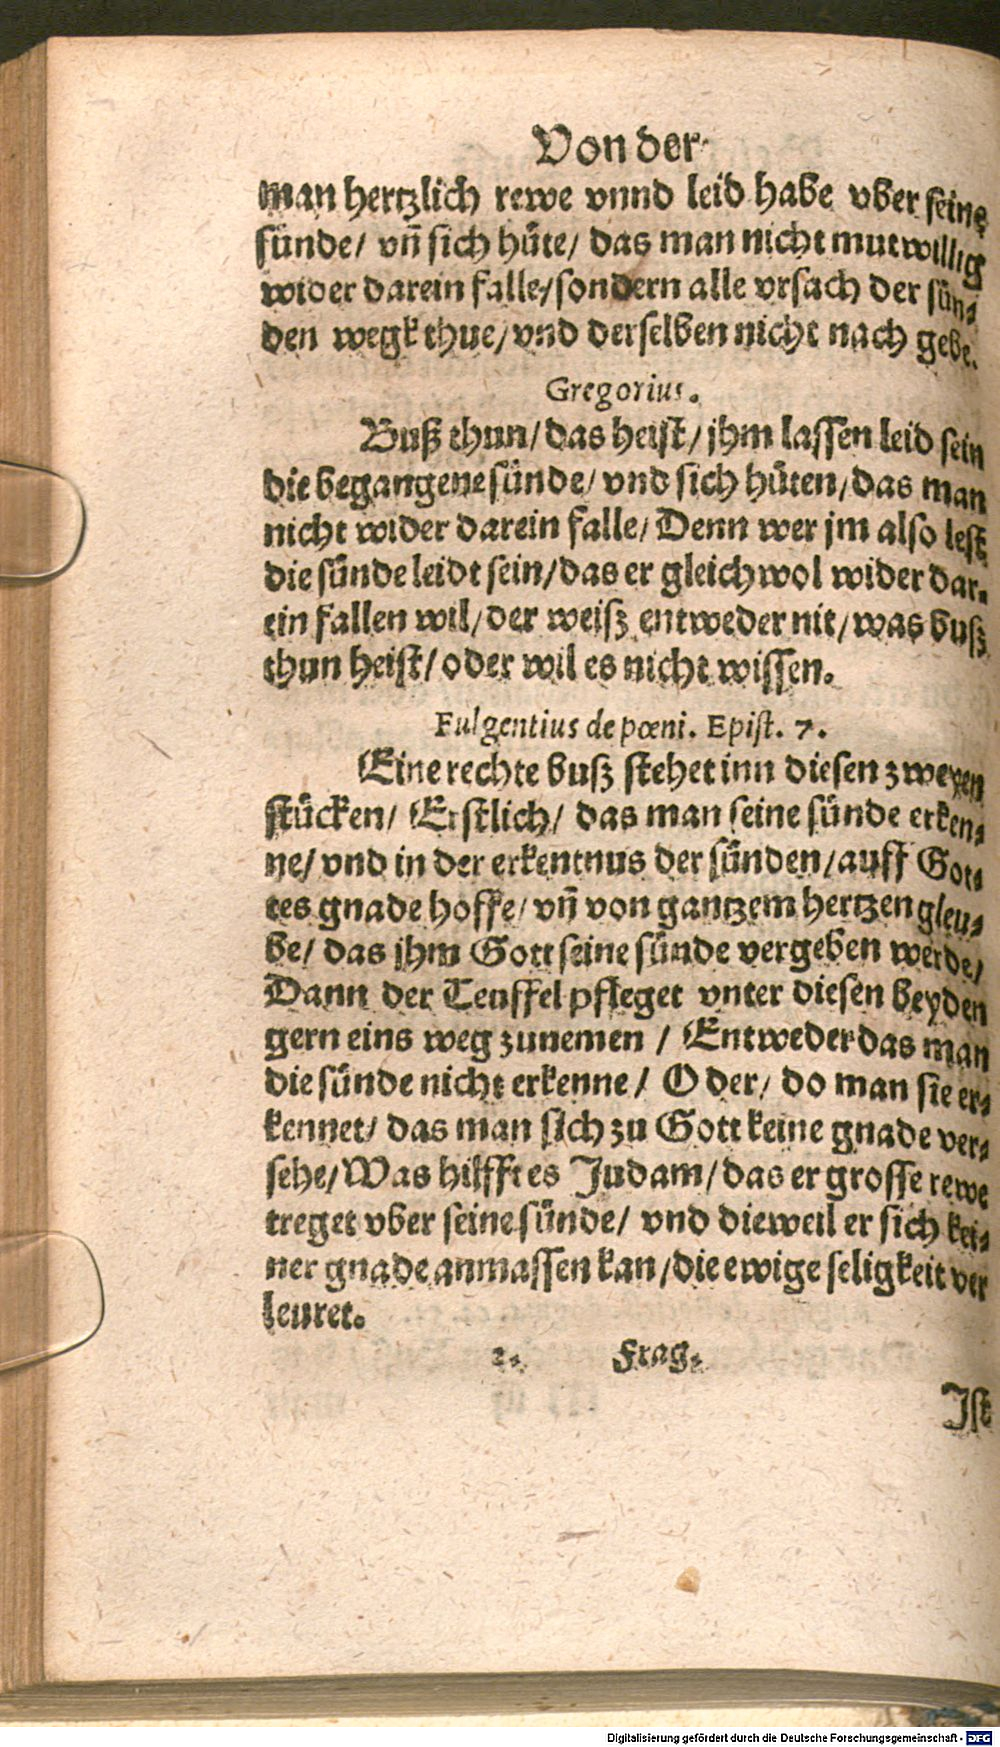 Von der
man hertzlich rewe vnnd leid habe vber seine
sünde/ vñ sich hüte/ das man nicht mutwillig
wider darein falle/ sondern alle vrsach der sün-
den wegk thue/ vnd derselben nicht nach gebe.
Gregorius.
Buß thun/ das heist/ jhm lassen leid sein
die begangene sünde/ vnd sich hüten/ das man
nicht wider darein falle/ Denn wer jm also lest
die sünde leidt sein/ das er gleichwol wider dar-
ein fallen wil/ der weisz entweder nit/ was busz
thun heist/ oder wil es nicht wissen.
Fulgentius de pœni. Epist. 7.
Eine rechte busz stehet inn diesen zweyen
stücken/ Erstlich/ das man seine sünde erken-
ne/ vnd in der erkentnus der sünden/ auff Got-
tes gnade hoffe/ vñ von gantzem hertzen gleu-
be/ das jhm Gott seine sünde vergeben werde/
Dann der Teuffel pfleget vnter diesen beyden
gern eins weg zunemen / Entweder das man
die sünde nicht erkenne/ Oder/ do man sie er-
kennet/ das man sich zu Gott keine gnade ver-
sehe/ Was hilfft es Judam/ das er grosse rewe
treget vber seine sünde/ vnd dieweil er sich kei-
ner gnade anmassen kan/ die ewige seligkeit ver
leuret.
2. Frag.
Ist
Digitalisierung gefördert durch die Deutsche Forschungsgemeinschaft - DFG